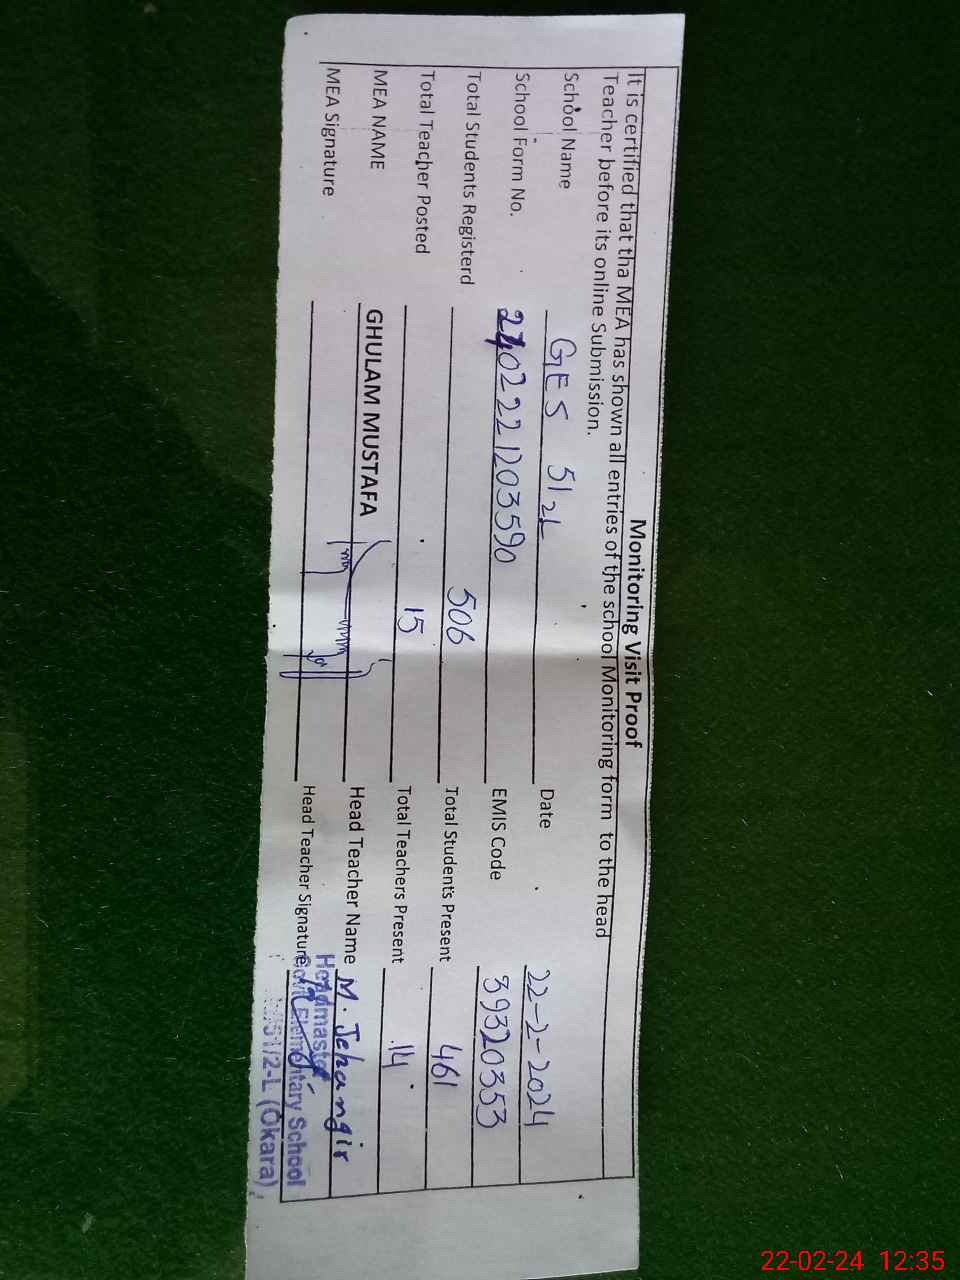 Monitoring Visit Proof
It is certified that tha MEA has shown all entries of the school Monitoring form to the head
Teacher before its online Submission.
School Name GES 51 2L Date 22-2-2024
School Form No. 2402221203590 EMIS Code 39320353
Total Students Registerd 506 Total Students Present 461
Total Teacher Posted 15 Total Teachers Present 14
MEA NAME GHULAM MUSTAFA Head Teacher Name M. Jehangir
MEA Signature Head Teacher Signature
Headmaster
Govt Elementary School
51/2-L (Okara)
22-02-24 12:35